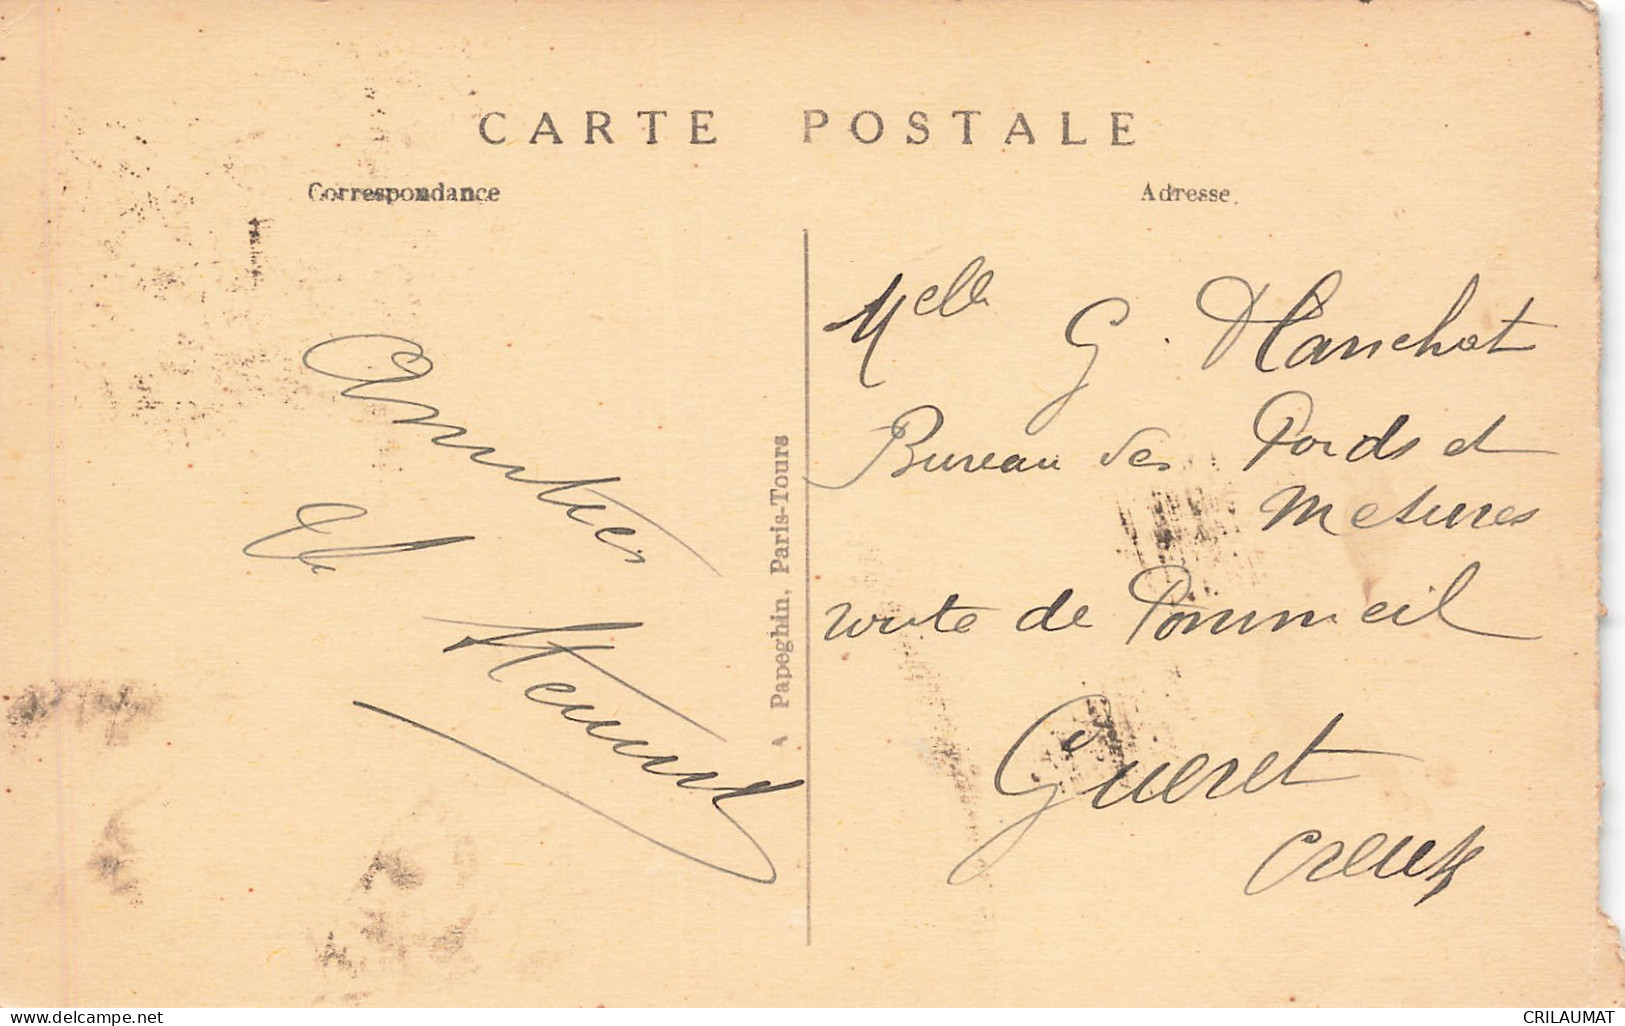 CARTE POSTALE
Correspondance
Adresse
Amitiés
A Papeghin, Paris-Tours
Melle G. Planchot
Bureau des Poids et
Mesures
route de Pommeil
Gueret
Creuse
www.delcampe.net
CRILAUMAT